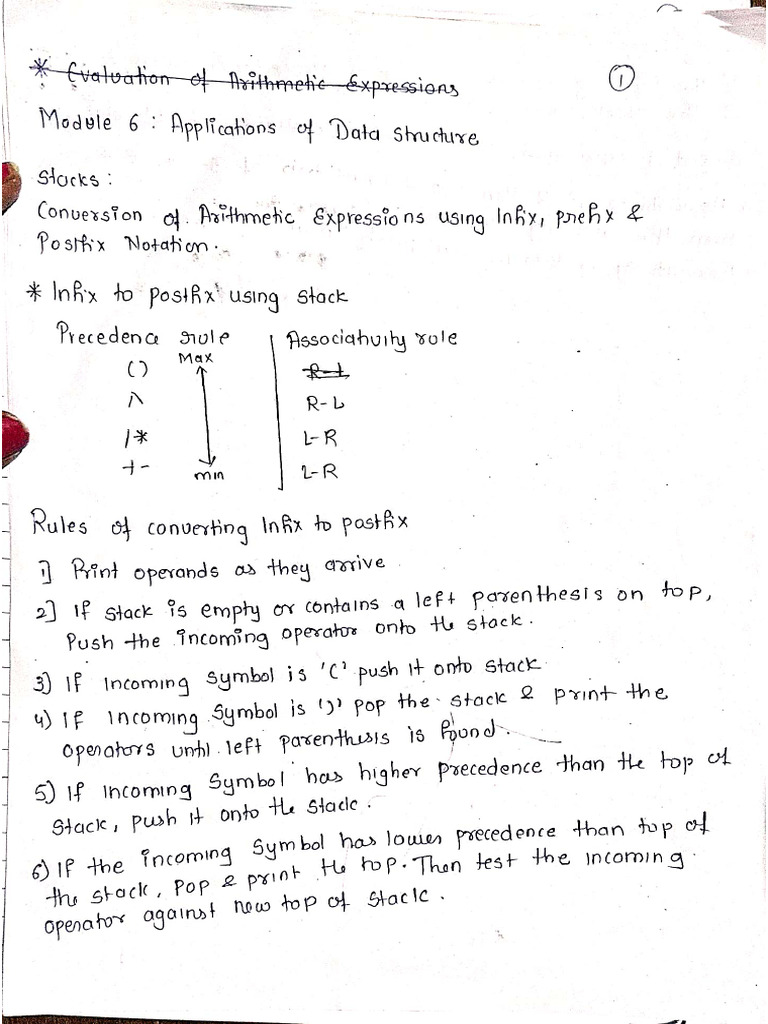 * Evaluation of Arithmetic Expressions
1
Module 6 : Applications of Data Structure
Stacks :
Conversion of Arithmetic Expressions using Infix, prefix &
Postfix Notation.
* Infix to postfix using stack
Precedence rule | Associativity rule
Max
() R-L
^ R-L
/* L-R
+- L-R
min
Rules of converting Infix to postfix
1] Print operands as they arrive
2] If stack is empty or contains a left parenthesis on top,
Push the incoming operator onto the stack.
3) If incoming symbol is '(' push it onto stack
4) If incoming symbol is ')' pop the stack & print the
operators until left parenthesis is found.
5) If incoming symbol has higher precedence than the top of
stack, push it onto the stack.
6) If the incoming symbol has lower precedence than top of
the stack, pop & print the top. Then test the incoming
operator against new top of stack.